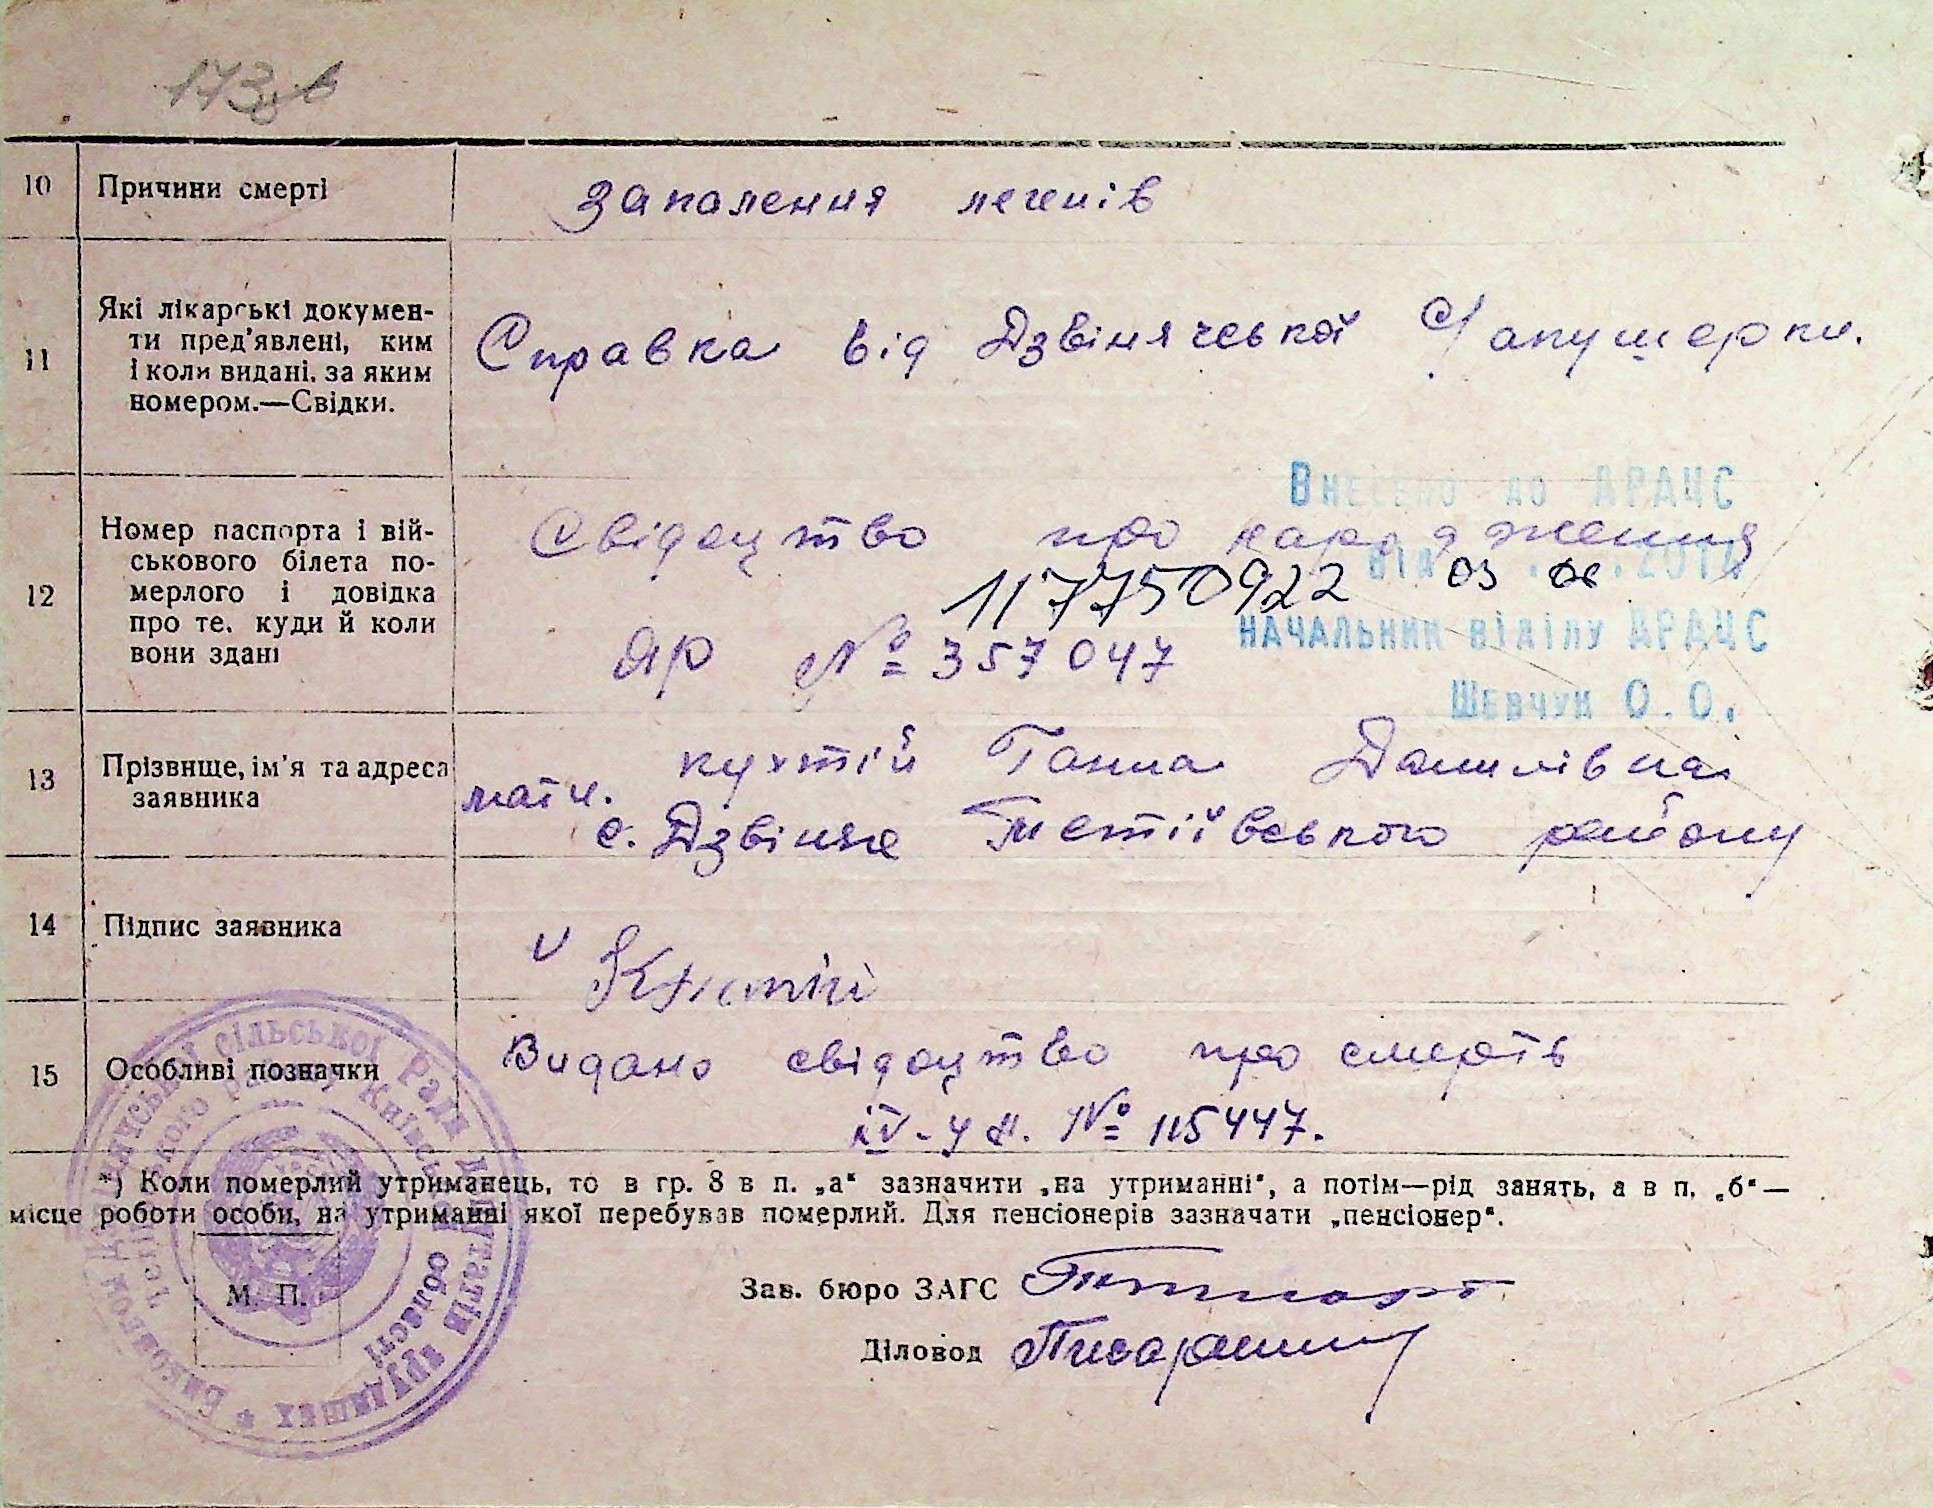 173
10 Причини смерті Запалення легенів
11 Які лікарські докумен-
ти пред'явлені, ким
і коли видані, за яким
номером.—Свідки.
Справка від Дзвінячської С/ акушерки.
Внесено до АРАЦС
12 Номер паспорта і вій-
ськового білета по-
мерлого і довідка
про те, куди й коли
вони здані
Свідоцтво про народження
від 03 06
1177750922
ЯР № 357047
начальник відділу АРАЦС
Шевчук О.О.
13 Прізвище, ім'я та адреса
заявника
мати. Кухтій Ганна Данилівна
с. Дзвіняче Тетіївського району
14 Підпис заявника
V Кухтій
15 Особливі позначки Видано свідоцтво про смерть
IV-ЧЯ. № 115447.
*) Коли померлий утриманець, то в гр. 8 в п. „а“ зазначити „на утриманні“, а потім—рід занять, а в п. „б“—
місце роботи особи, на утриманні якої перебував померлий. Для пенсіонерів зазначати „пенсіонер“.
Зав. бюро ЗАГС
Діловод
М. П.
сільської Ради депутатів трудящих * Виконавчий
району Київської області